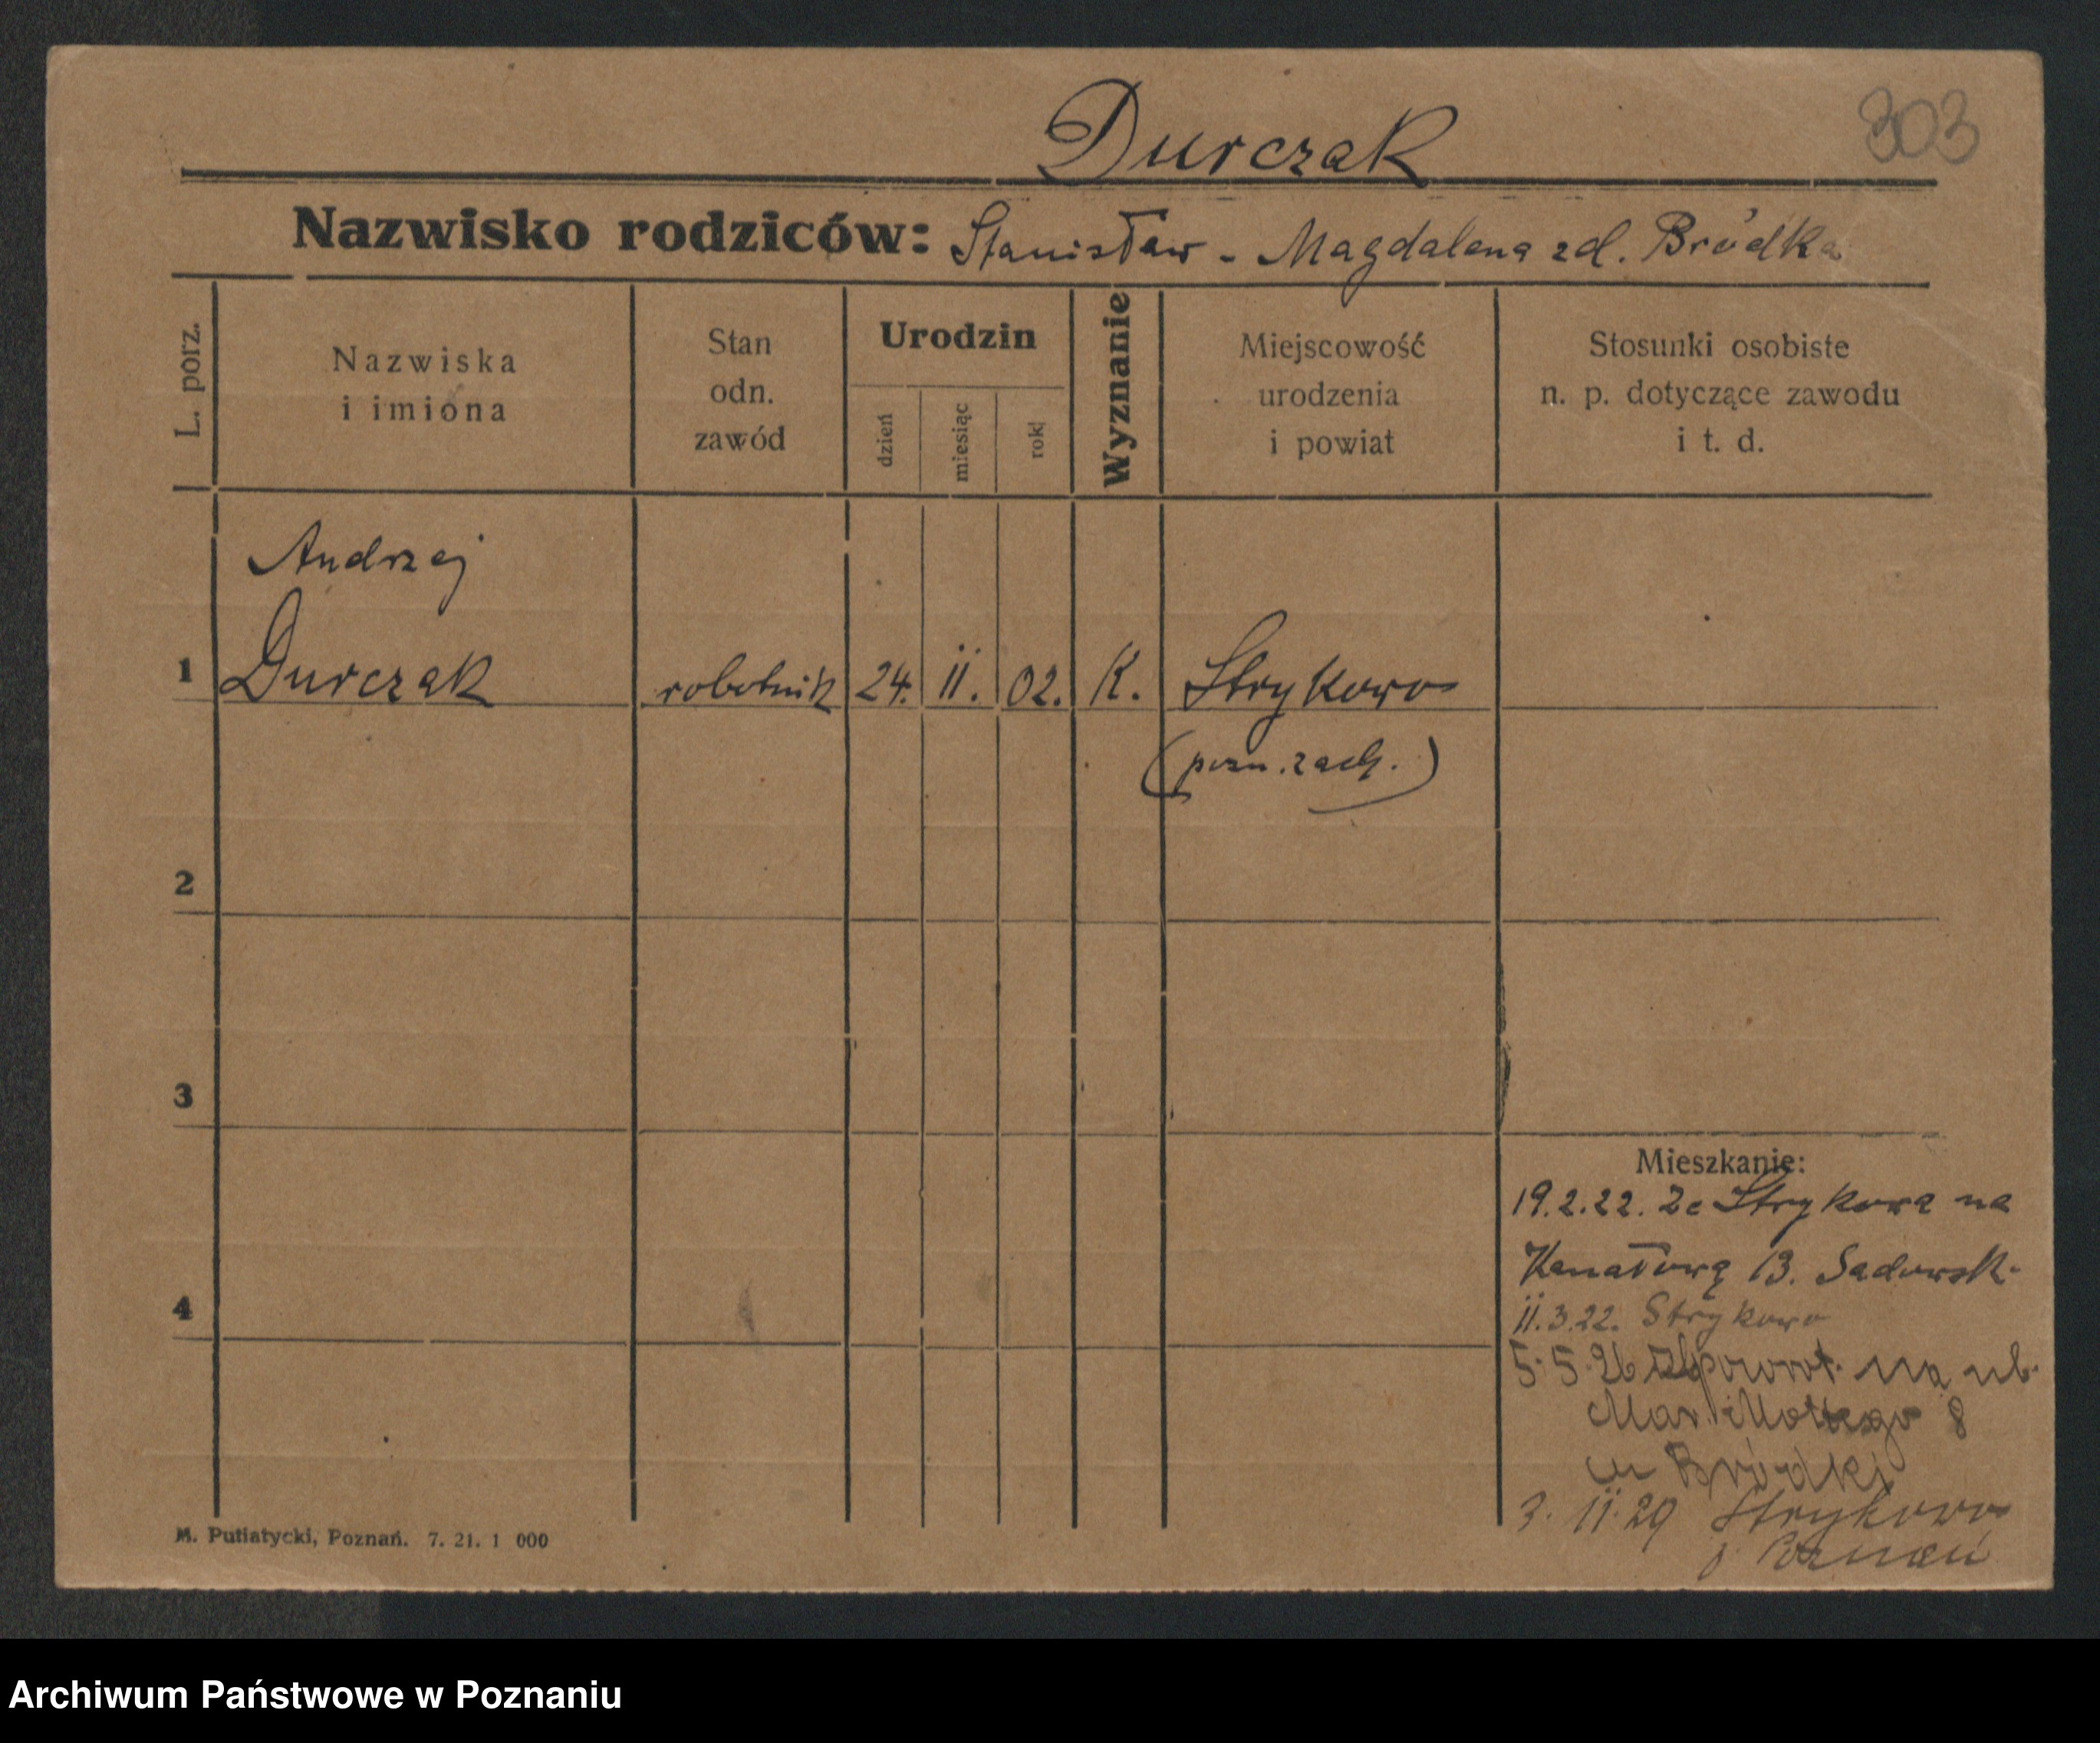 Durczak
303
Nazwisko rodziców: Stanisław - Magdalena zd. Bródka
L. porz.
Nazwiska
i imiona
Stan
odn.
zawód
Urodzin
dzień
miesiąc
rok
Wyznanie
Miejscowość
urodzenia
i powiat
Stosunki osobiste
n. p. dotyczące zawodu
i t. d.
Andrzej
1 Durczak robotnik 24. 11. 02. K. Strykowo
(pozn. zach.)
2
3
4
Mieszkanie:
19.2.22. Ze Strykowa na
Kanałową 13. Sadowsk.
11.3.22. Strykowo
5.5.26 na ul.
Mar. Mottego 8
u Bródki
3.11.29 Strykowo
p. Poznań
M. Putiatycki, Poznań. 7. 21. 1 000
Archiwum Państwowe w Poznaniu